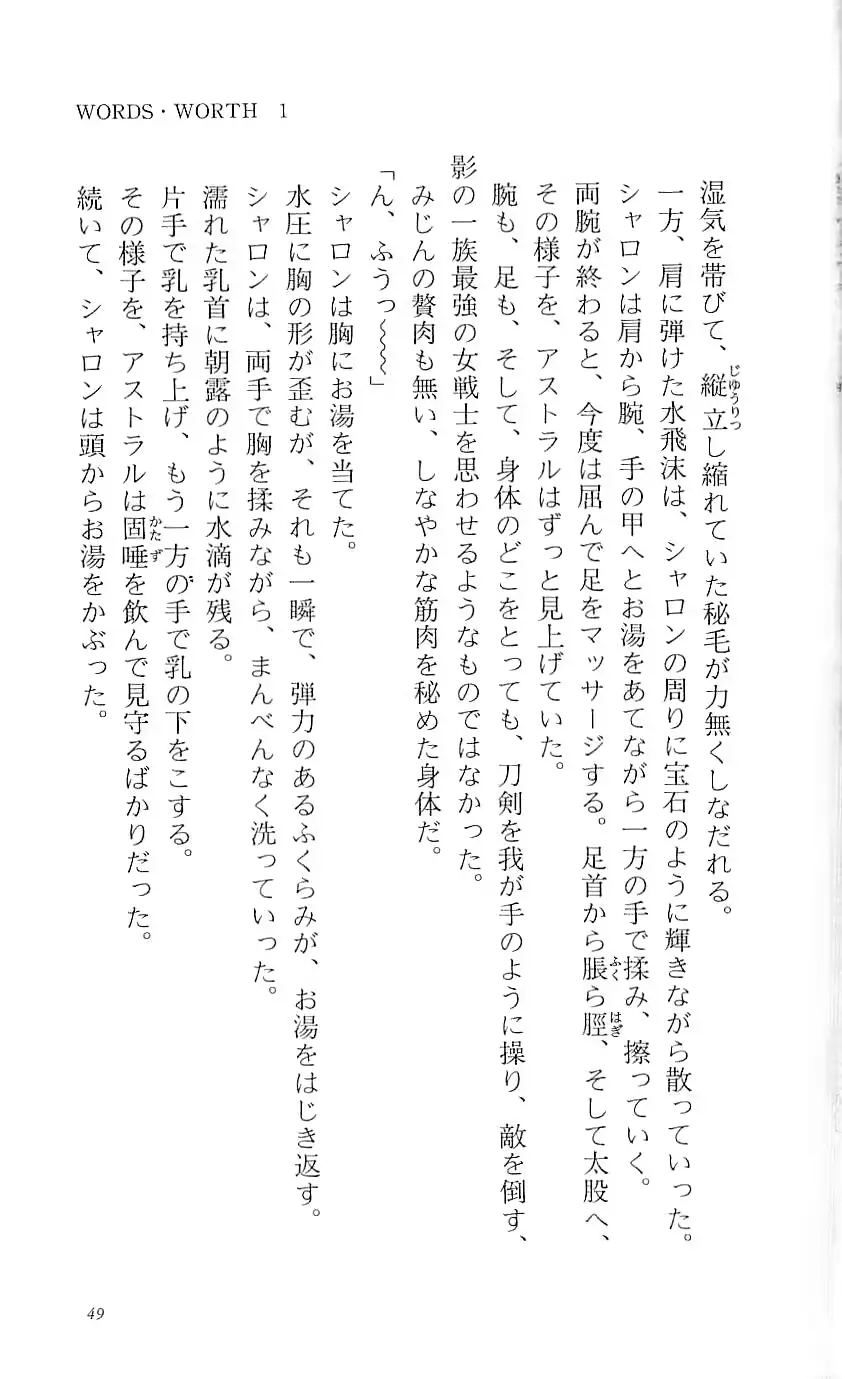 WORDS・WORTH 1
湿気を帯びて、縦立し縮れていた秘毛が力無くしなだれる。
じゅうりつ
一方、肩に弾けた水飛沫は、シャロンの周りに宝石のように輝きながら散っていった。
シャロンは肩から腕、手の甲へとお湯をあてながら一方の手で揉み、擦っていく。
両腕が終わると、今度は屈んで足をマッサージする。足首から脹ら脛、そして太股へ、
ふく
はぎ
その様子を、アストラルはずっと見上げていた。
腕も、足も、そして、身体のどこをとっても、刀剣を我が手のように操り、敵を倒す、
影の一族最強の女戦士を思わせるようなものではなかった。
みじんの贅肉も無い、しなやかな筋肉を秘めた身体だ。
「ん、ふうっ〜〜〜」
シャロンは胸にお湯を当てた。
水圧に胸の形が歪むが、それも一瞬で、弾力のあるふくらみが、お湯をはじき返す。
シャロンは、両手で胸を揉みながら、まんべんなく洗っていった。
濡れた乳首に朝露のように水滴が残る。
片手で乳を持ち上げ、もう一方の手で乳の下をこする。
その様子を、アストラルは固唾を飲んで見守るばかりだった。
かたず
続いて、シャロンは頭からお湯をかぶった。
49